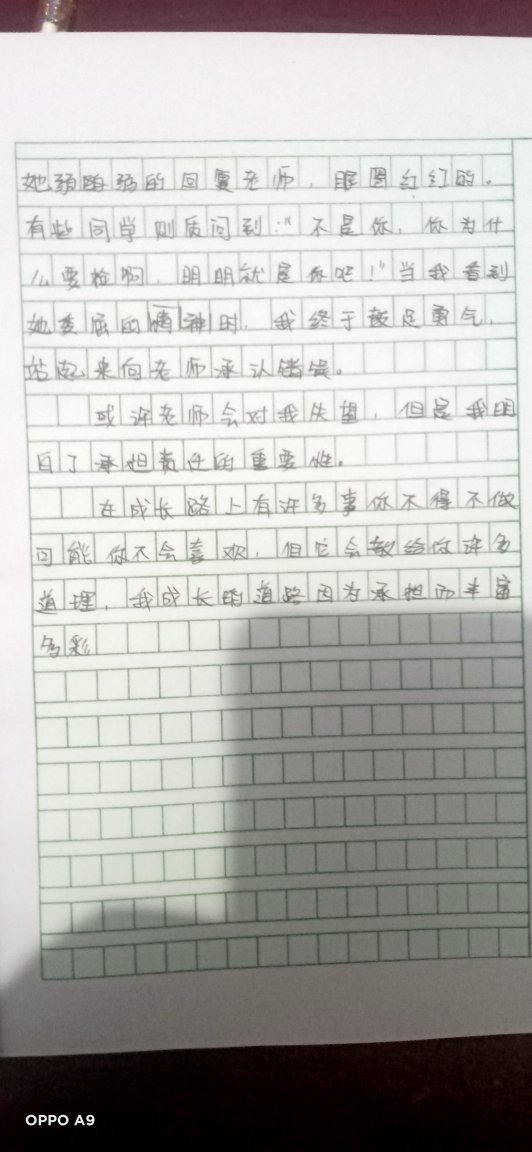 她弱弱的回复老师，眼圈红红的。
有些同学则质问到："不是你，你为什
么要捡啊，明明就是你吧！"当我看到
她委屈的精神时，我终于鼓足勇气，
站起来向老师承认错误。
或许老师会对我失望，但是我明
白了承担责任的重要性。
在成长路上有许多事你不得不做
可能你不会喜欢，但它会教给你许多
道理，我成长的道路因为承担而丰富
多彩
OPPO A9